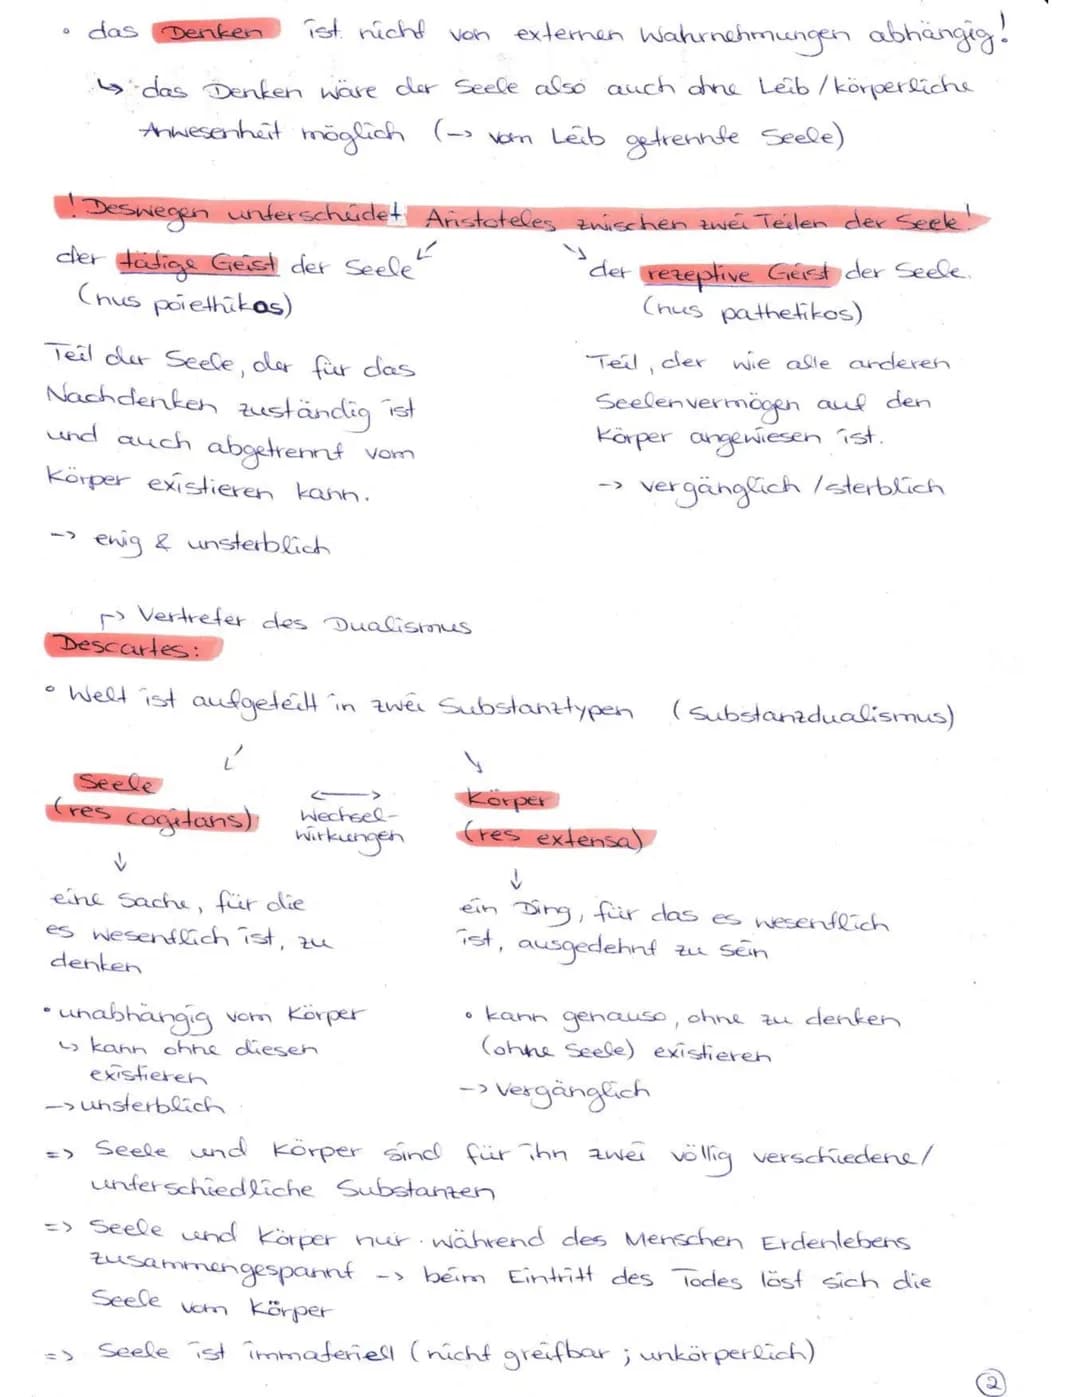 • das Denken ist nicht von externen Wahrnehmungen abhängig!
↳ das Denken wäre der Seele also auch ohne Leib / körperliche
Anwesenheit möglich (-> vom Leib getrennte Seele)
! Deswegen unterscheidet Aristoteles zwischen zwei Teilen der Seele!
der tätige Geist der Seele
(nus poiethikos)
Teil der Seele, der für das
Nachdenken zuständig ist
und auch abgetrennt vom
Körper existieren kann.
-> ewig & unsterblich
der rezeptive Geist der Seele.
(nus pathetikos)
Teil, der wie alle anderen
Seelenvermögen auf den
Körper angewiesen ist.
-> vergänglich / sterblich
-> Vertreter des Dualismus
Descartes:
• Welt ist aufgeteilt in zwei Substanztypen (Substanzdualismus)
Seele
(res cogitans)
<-> Wechsel-
wirkungen
Körper
(res extensa)
↓
eine Sache, für die
es wesentlich ist, zu
denken
• unabhängig vom Körper
↳ kann ohne diesen
existieren
-> unsterblich
↓
ein Ding, für das es wesentlich
ist, ausgedehnt zu sein
• kann genauso, ohne zu denken
(ohne Seele) existieren
-> vergänglich
=> Seele und Körper sind für ihn zwei völlig verschiedene /
unterschiedliche Substanzen
=> Seele und Körper nur während des Menschen Erdenlebens
zusammengespannt -> beim Eintritt des Todes löst sich die
Seele vom Körper
=> Seele ist immateriell (nicht greifbar ; unkörperlich)
2